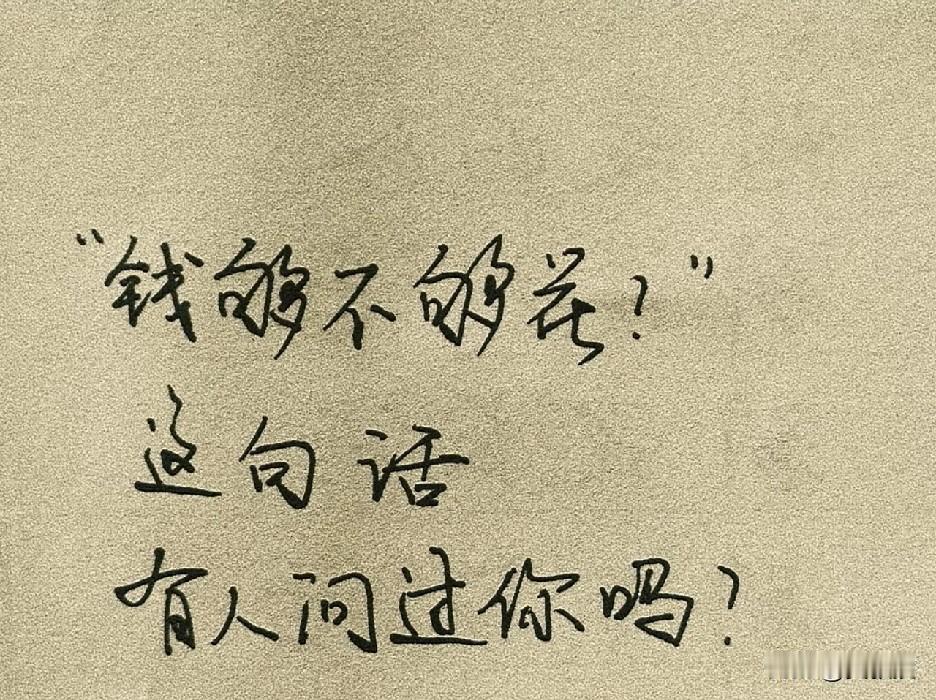 “钱够不够花？”
这句话
有人问过你吗？